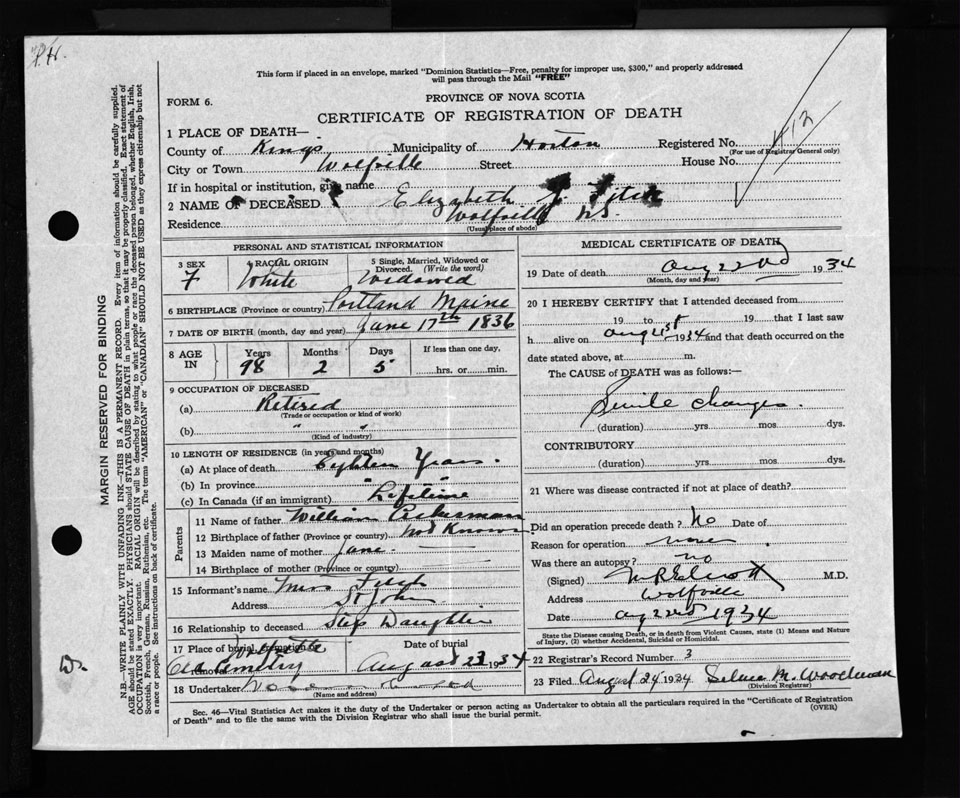 P.H.
This form if placed in an envelope, marked "Dominion Statistics—Free, penalty for improper use, $300," and properly addressed
will pass through the Mail "FREE"
FORM 6.
PROVINCE OF NOVA SCOTIA
CERTIFICATE OF REGISTRATION OF DEATH
1 PLACE OF DEATH—
County of Kings Municipality of Horton Registered No. 412
(For use of Registrar General only)
City or Town Wolfville Street House No.
If in hospital or institution, give name
2 NAME OF DECEASED Elizabeth J. Fitch
Residence Wolfville N.S.
(Usual place of abode)
PERSONAL AND STATISTICAL INFORMATION
3 SEX F
RACIAL ORIGIN White
5 Single, Married, Widowed or
Divorced. (Write the word)
Widowed
6 BIRTHPLACE (Province or country) Portland Maine
7 DATE OF BIRTH (month, day and year) June 17th 1836
8 AGE IN Years 98 Months 2 Days 5 If less than one day, hrs. or min.
9 OCCUPATION OF DECEASED
(a) Retired
(Trade or occupation or kind of work)
(b) " "
(Kind of industry)
10 LENGTH OF RESIDENCE (in years and months)
(a) At place of death Eighteen Years
(b) In province "
(c) In Canada (if an immigrant) Lifetime
Parents
11 Name of father William
12 Birthplace of father (Province or country) Not Known
13 Maiden name of mother Jane
14 Birthplace of mother (Province or country)
15 Informant's name Miss Fitch
Address St John
16 Relationship to deceased Step Daughter
17 Place of burial, cremation or removal Wolfville Old Cemetery
Date of burial August 23 1934
18 Undertaker
(Name and address)
MEDICAL CERTIFICATE OF DEATH
19 Date of death Aug 22nd 1934
(Month, day and year)
20 I HEREBY CERTIFY that I attended deceased from
19 to 19 that I last saw
h alive on Aug 21st 1934 and that death occurred on the
date stated above, at m.
The CAUSE of DEATH was as follows:—
Senile changes.
(duration) yrs. mos. dys.
CONTRIBUTORY
(duration) yrs. mos. dys.
21 Where was disease contracted if not at place of death?
Did an operation precede death? No Date of
Reason for operation none
Was there an autopsy? no
(Signed) M.R. Elliott M.D.
Address Wolfville
Date Aug 22nd 1934
State the Disease causing Death, or in death from Violent Causes, state (1) Means and Nature
of Injury, (2) whether Accidental, Suicidal or Homicidal.
22 Registrar's Record Number 3
23 Filed August 24 1934 M. Woodman
(Division Registrar)
Sec. 46—Vital Statistics Act makes it the duty of the Undertaker or person acting as Undertaker to obtain all the particulars required in the "Certificate of Registration
of Death" and to file the same with the Division Registrar who shall issue the burial permit.
(OVER)
MARGIN RESERVED FOR BINDING
N.B.—WRITE PLAINLY WITH UNFADING INK—THIS IS A PERMANENT RECORD. Every item of information should be carefully supplied.
AGE should be stated EXACTLY. PHYSICIANS should STATE CAUSE OF DEATH in plain terms, so that it may be properly classified. Exact statement of
OCCUPATION is very important. RACIAL ORIGIN will be described by stating to what people or race the deceased person belonged, whether English, Irish,
Scottish, French, German, Russian, Ruthenian, etc. The terms "AMERICAN" or "CANADIAN" SHOULD NOT BE USED as they express citizenship but not
a race or people. See instructions on back of certificate.